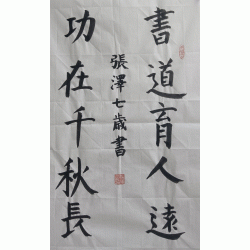 書道育人遠
功在千秋長
張澤七歲書